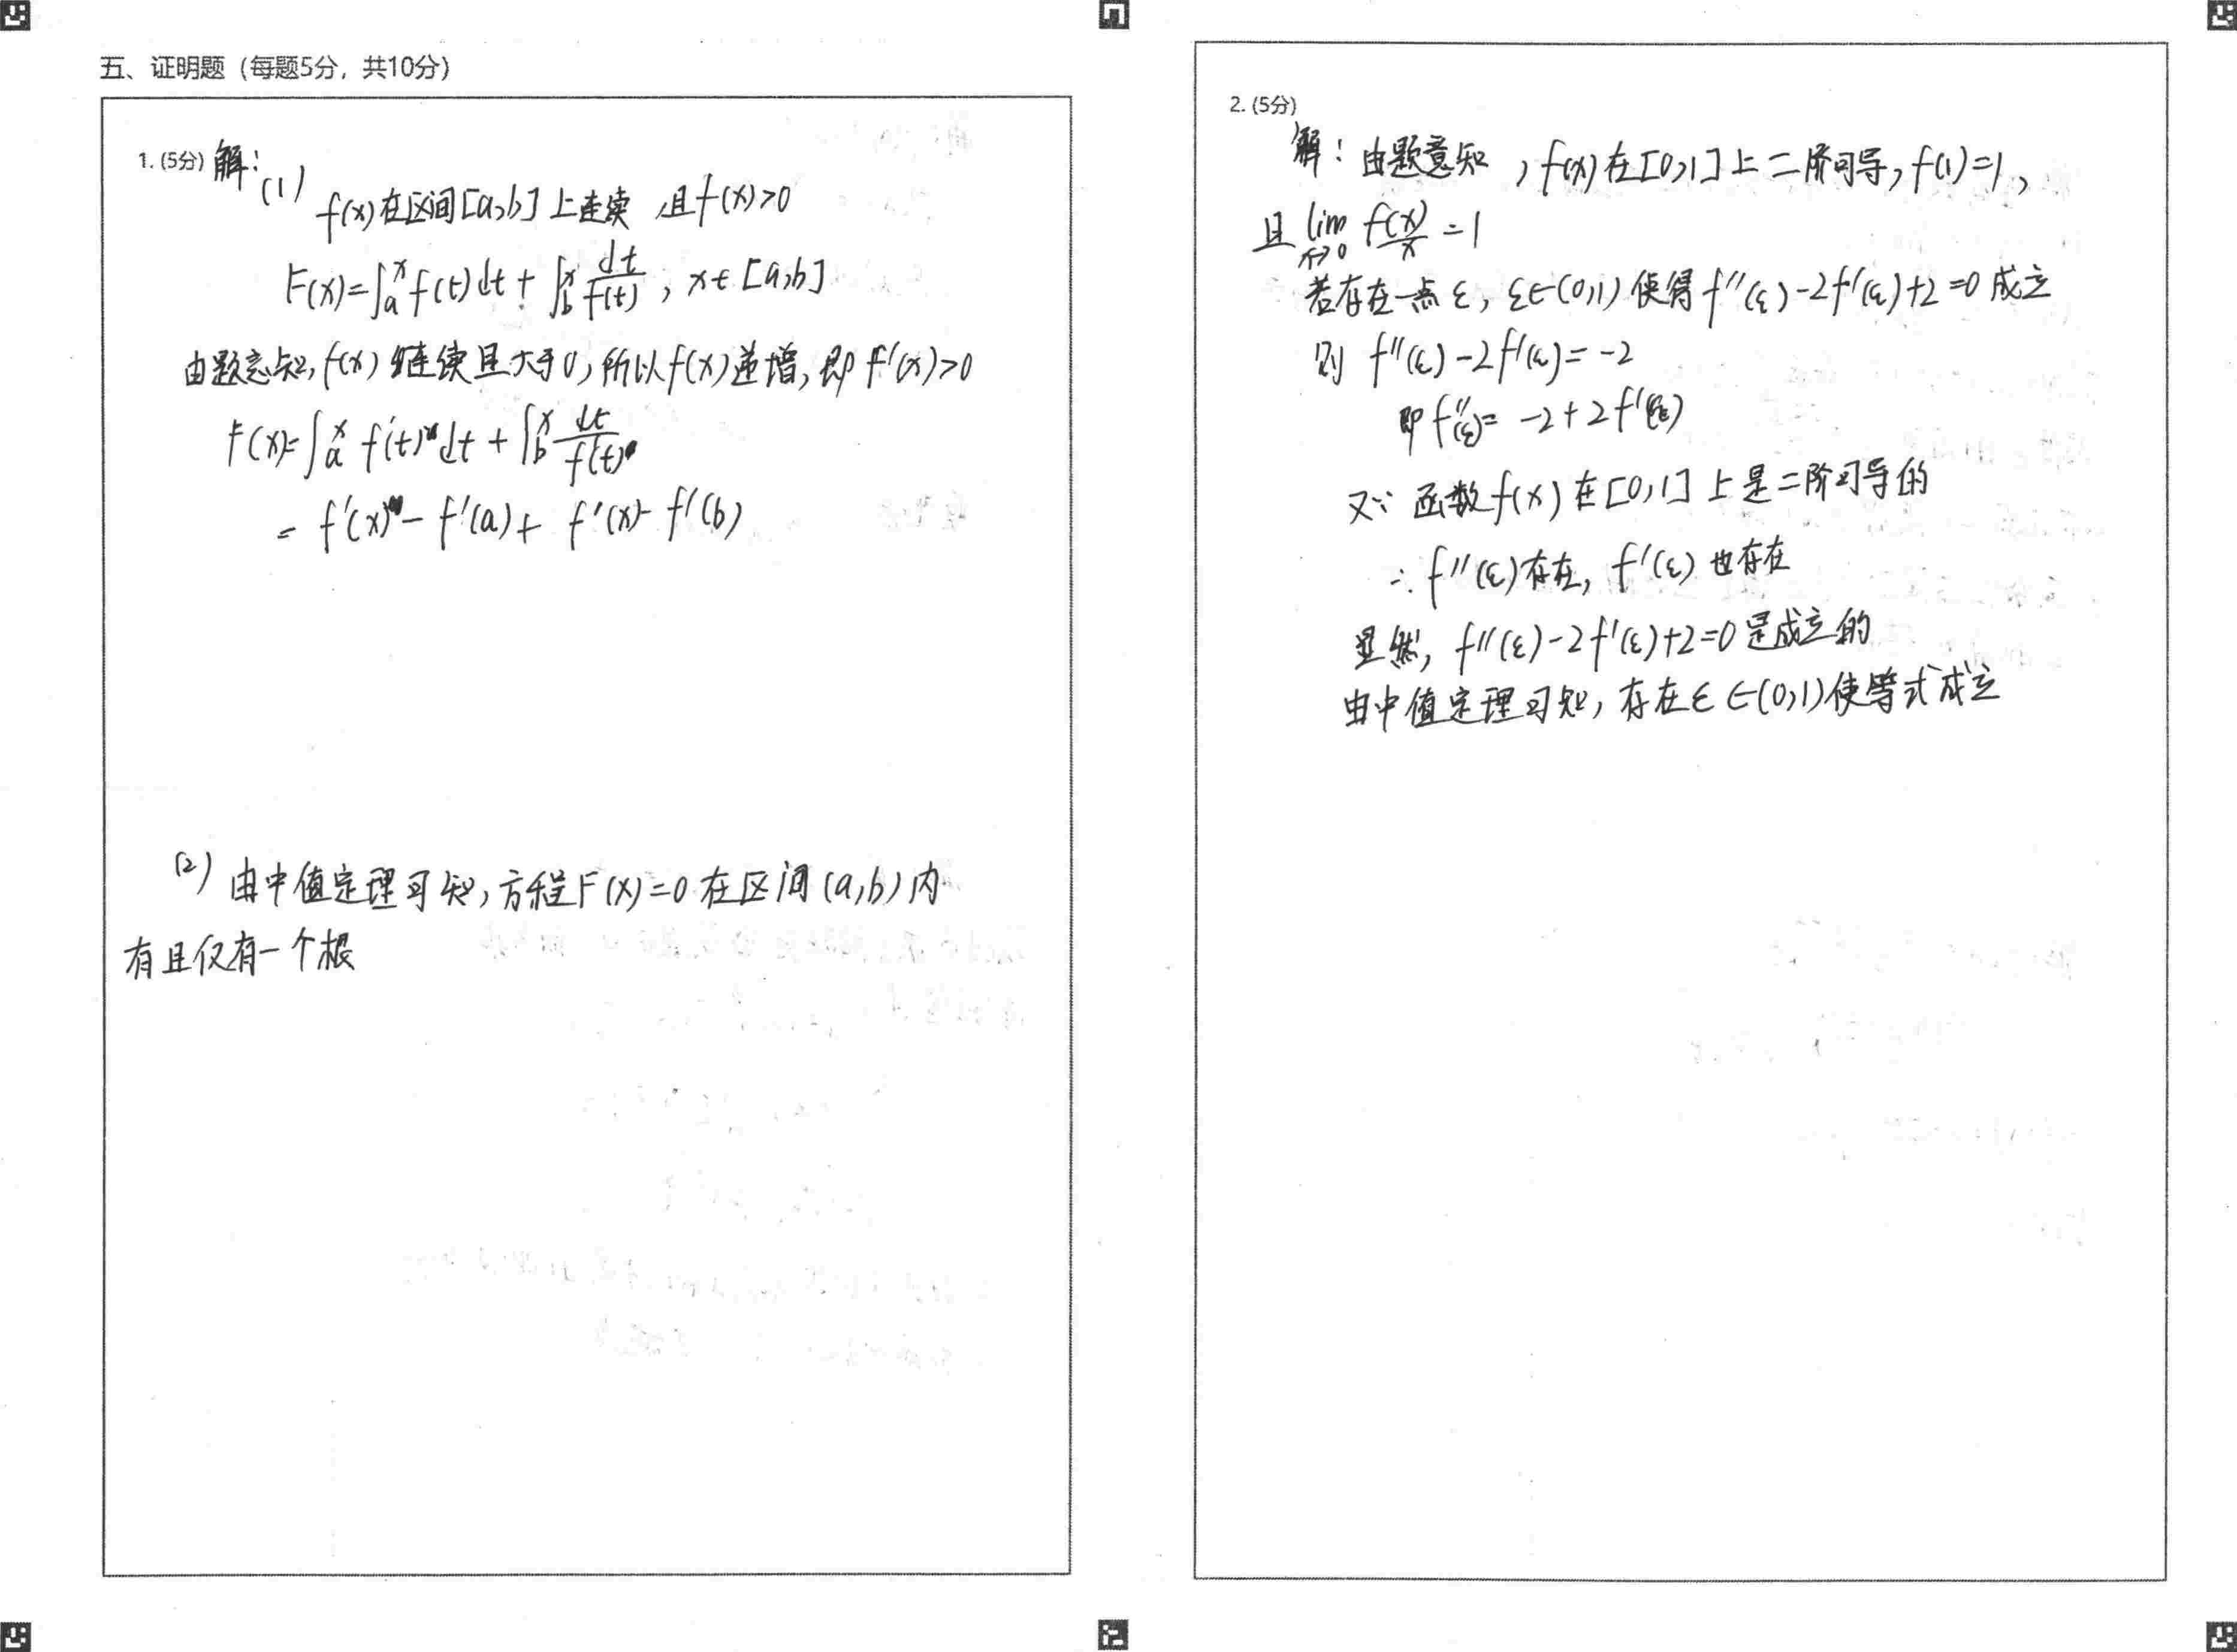 五、证明题（每题5分，共10分）
1. (5分) 解:
(1)
f(x)在区间[a,b]上连续,且f(x)>0
F(x)=∫ₐˣ f(t)dt+∫_b^x dt/f(t), x∈[a,b]
由题意知,f(x)连续且大于0,所以f(x)递增,即f'(x)>0
F(x)=∫ₐˣ f'(t)dt+∫_b^x dt/f'(t)
= f'(x)-f'(a)+f'(x)-f'(b)
(2) 由中值定理可知,方程F(x)=0在区间(a,b)内
有且仅有一个根
2. (5分)
解:由题意知,f(x)在[0,1]上二阶可导,f(1)=1,
且 lim_{x→0} f(x)/x =1
若存在一点ε,ε∈(0,1)使得f''(ε)-2f'(ε)+2=0成立
则 f''(ε)-2f'(ε)=-2
即f''(ε)= -2+2f'(ε)
又∵ 函数f(x)在[0,1]上是二阶可导的
∴f''(ε)存在, f'(ε)也存在
显然, f''(ε)-2f'(ε)+2=0是成立的
由中值定理可知,存在ε∈(0,1)使等式成立